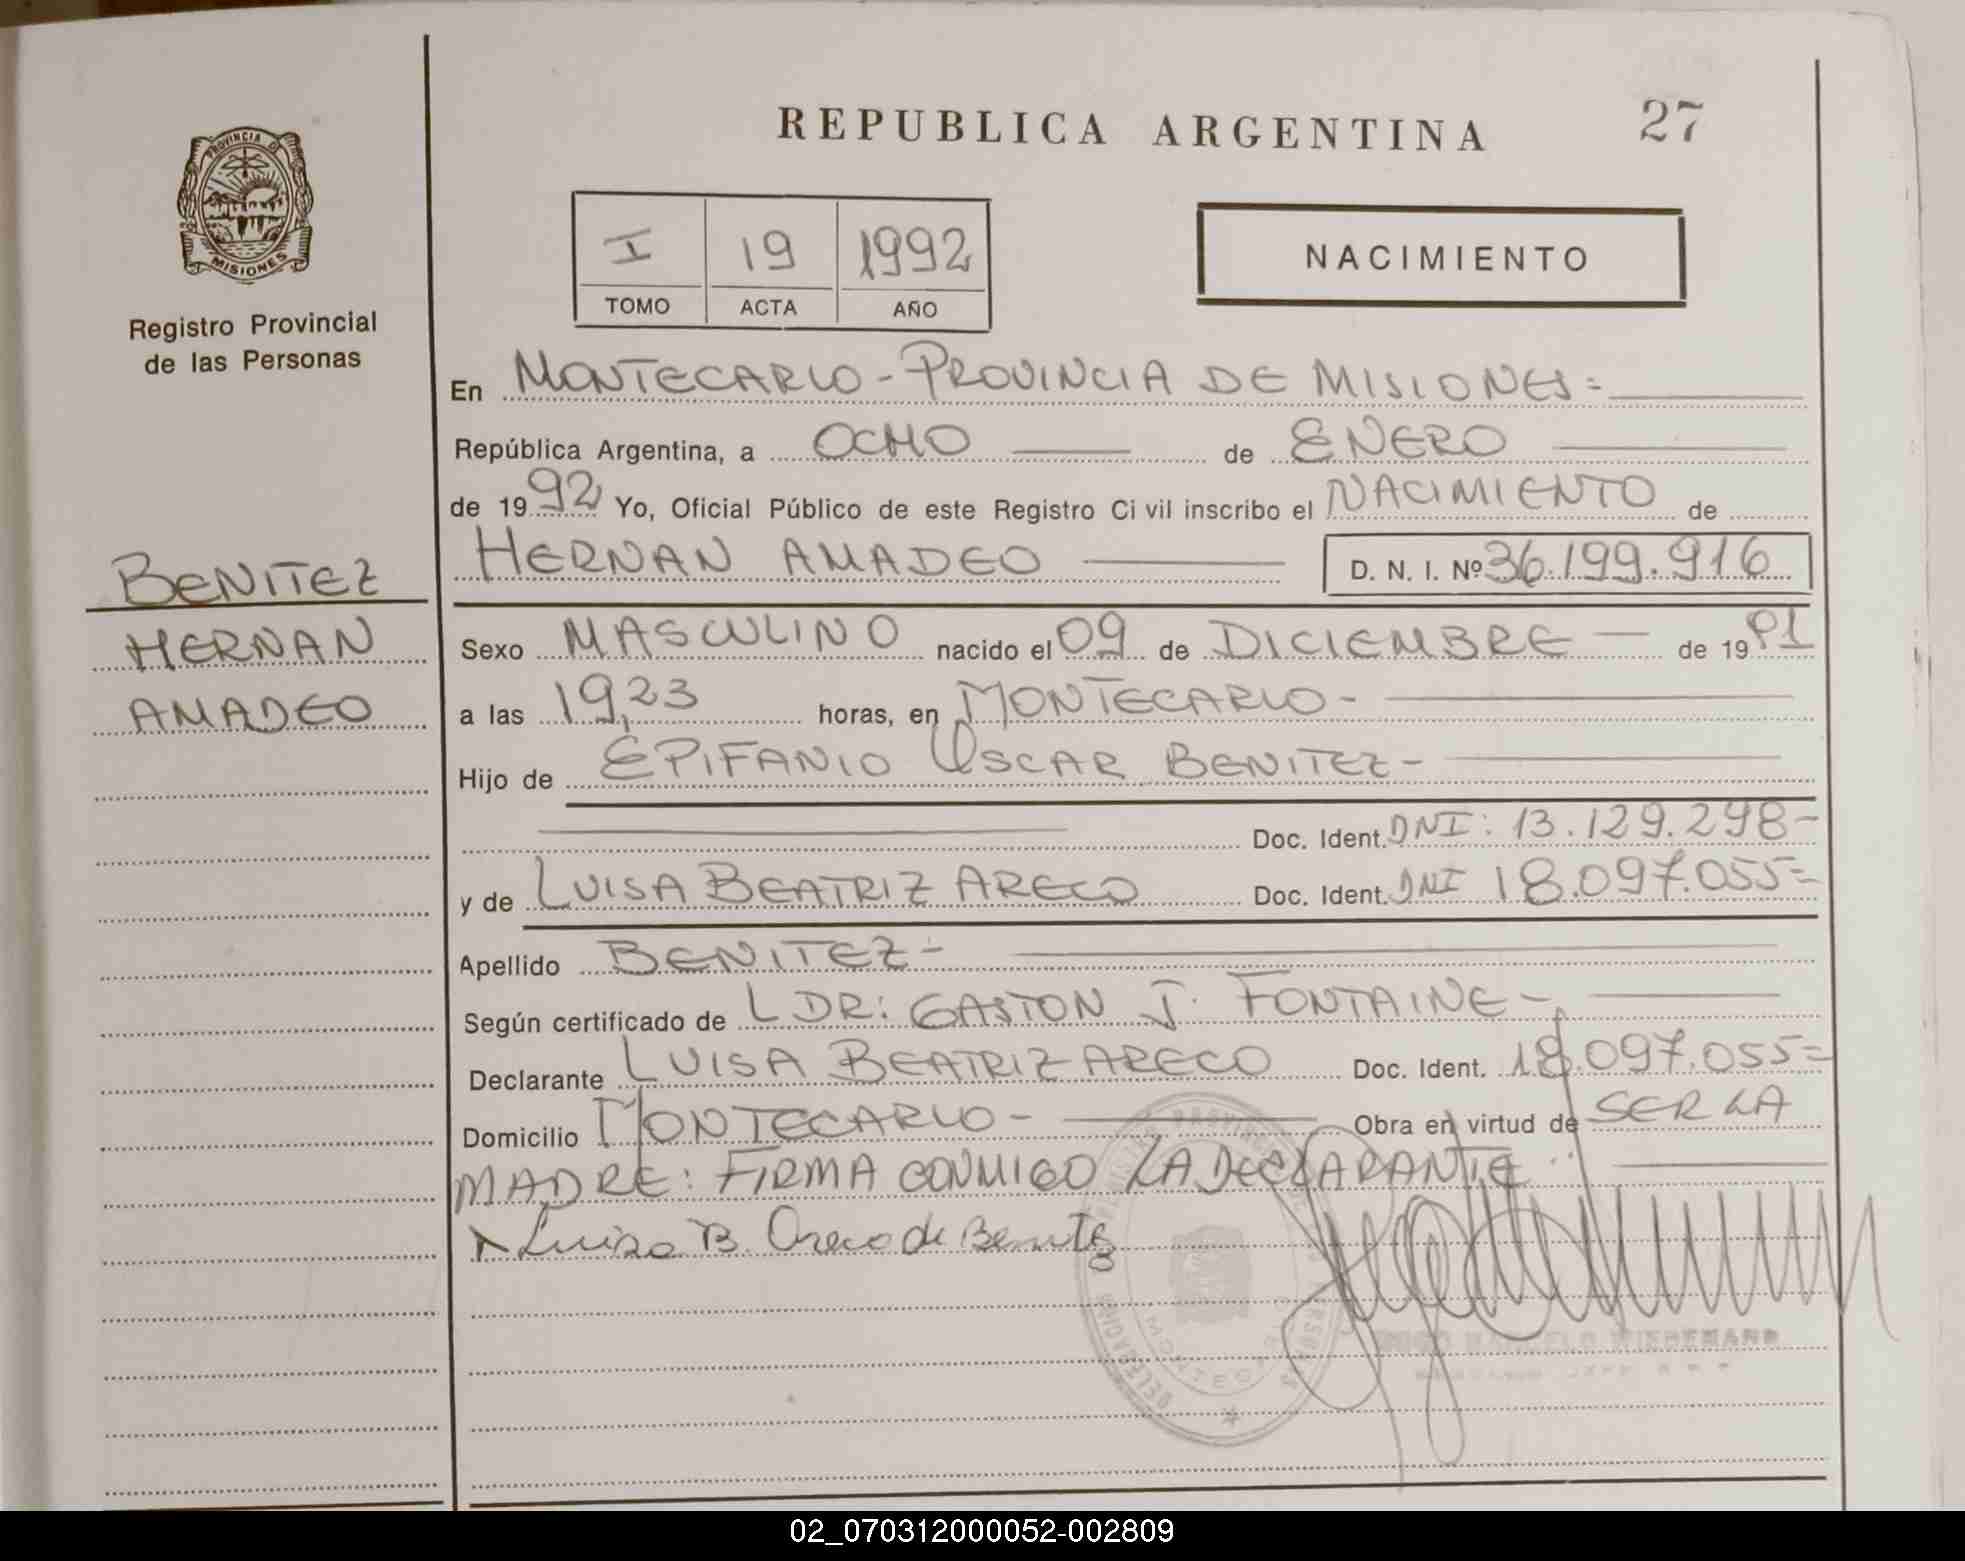 REPUBLICA ARGENTINA
27
PROVINCIA DE
MISIONES
Registro Provincial
de las Personas
I 19 1992
TOMO ACTA AÑO
NACIMIENTO
En MONTECARLO - PROVINCIA DE MISIONES=
República Argentina, a OCHO de ENERO
de 1992 Yo, Oficial Público de este Registro Civil inscribo el NACIMIENTO de
HERNAN AMADEO D. N. I. Nº 36.199.916
BENITEZ
HERNAN
AMADEO
Sexo MASCULINO nacido el 09 de DICIEMBRE de 1991
a las 19,23 horas, en MONTECARLO-
Hijo de EPIFANIO OSCAR BENITEZ-
Doc. Ident. DNI: 13.129.298-
y de LUISA BEATRIZ ARECO Doc. Ident. DNI 18.097.055=
Apellido BENITEZ-
Según certificado de L DR: GASTON J. FONTAINE-
Declarante LUISA BEATRIZ ARECO Doc. Ident. 18.097.055=
Domicilio MONTECARLO- Obra en virtud de SER LA
MADRE: FIRMA CONMIGO LA DECLARANTE
Luisa B. Areco de Benitez
DELEGACION
WIEDEMANN
02_070312000052-002809